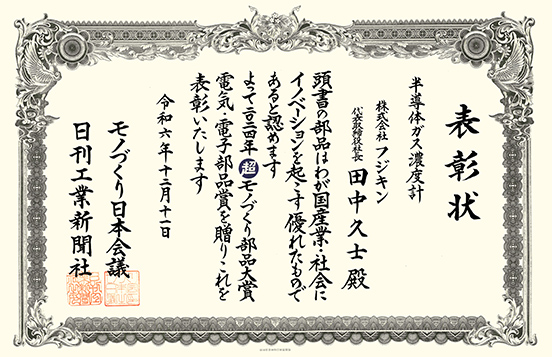 表彰状
半導体ガス濃度計
株式会社フジキン
代表取締役社長 田中久士 殿
頭書の部品はわが国産業・社会に
イノベーションを起こす優れたもので
あると認めます
よって二〇二四年 超 モノづくり部品大賞
電気・電子部品賞を贈りこれを
表彰いたします
令和六年十二月十一日
モノづくり日本会議
日刊工業新聞社